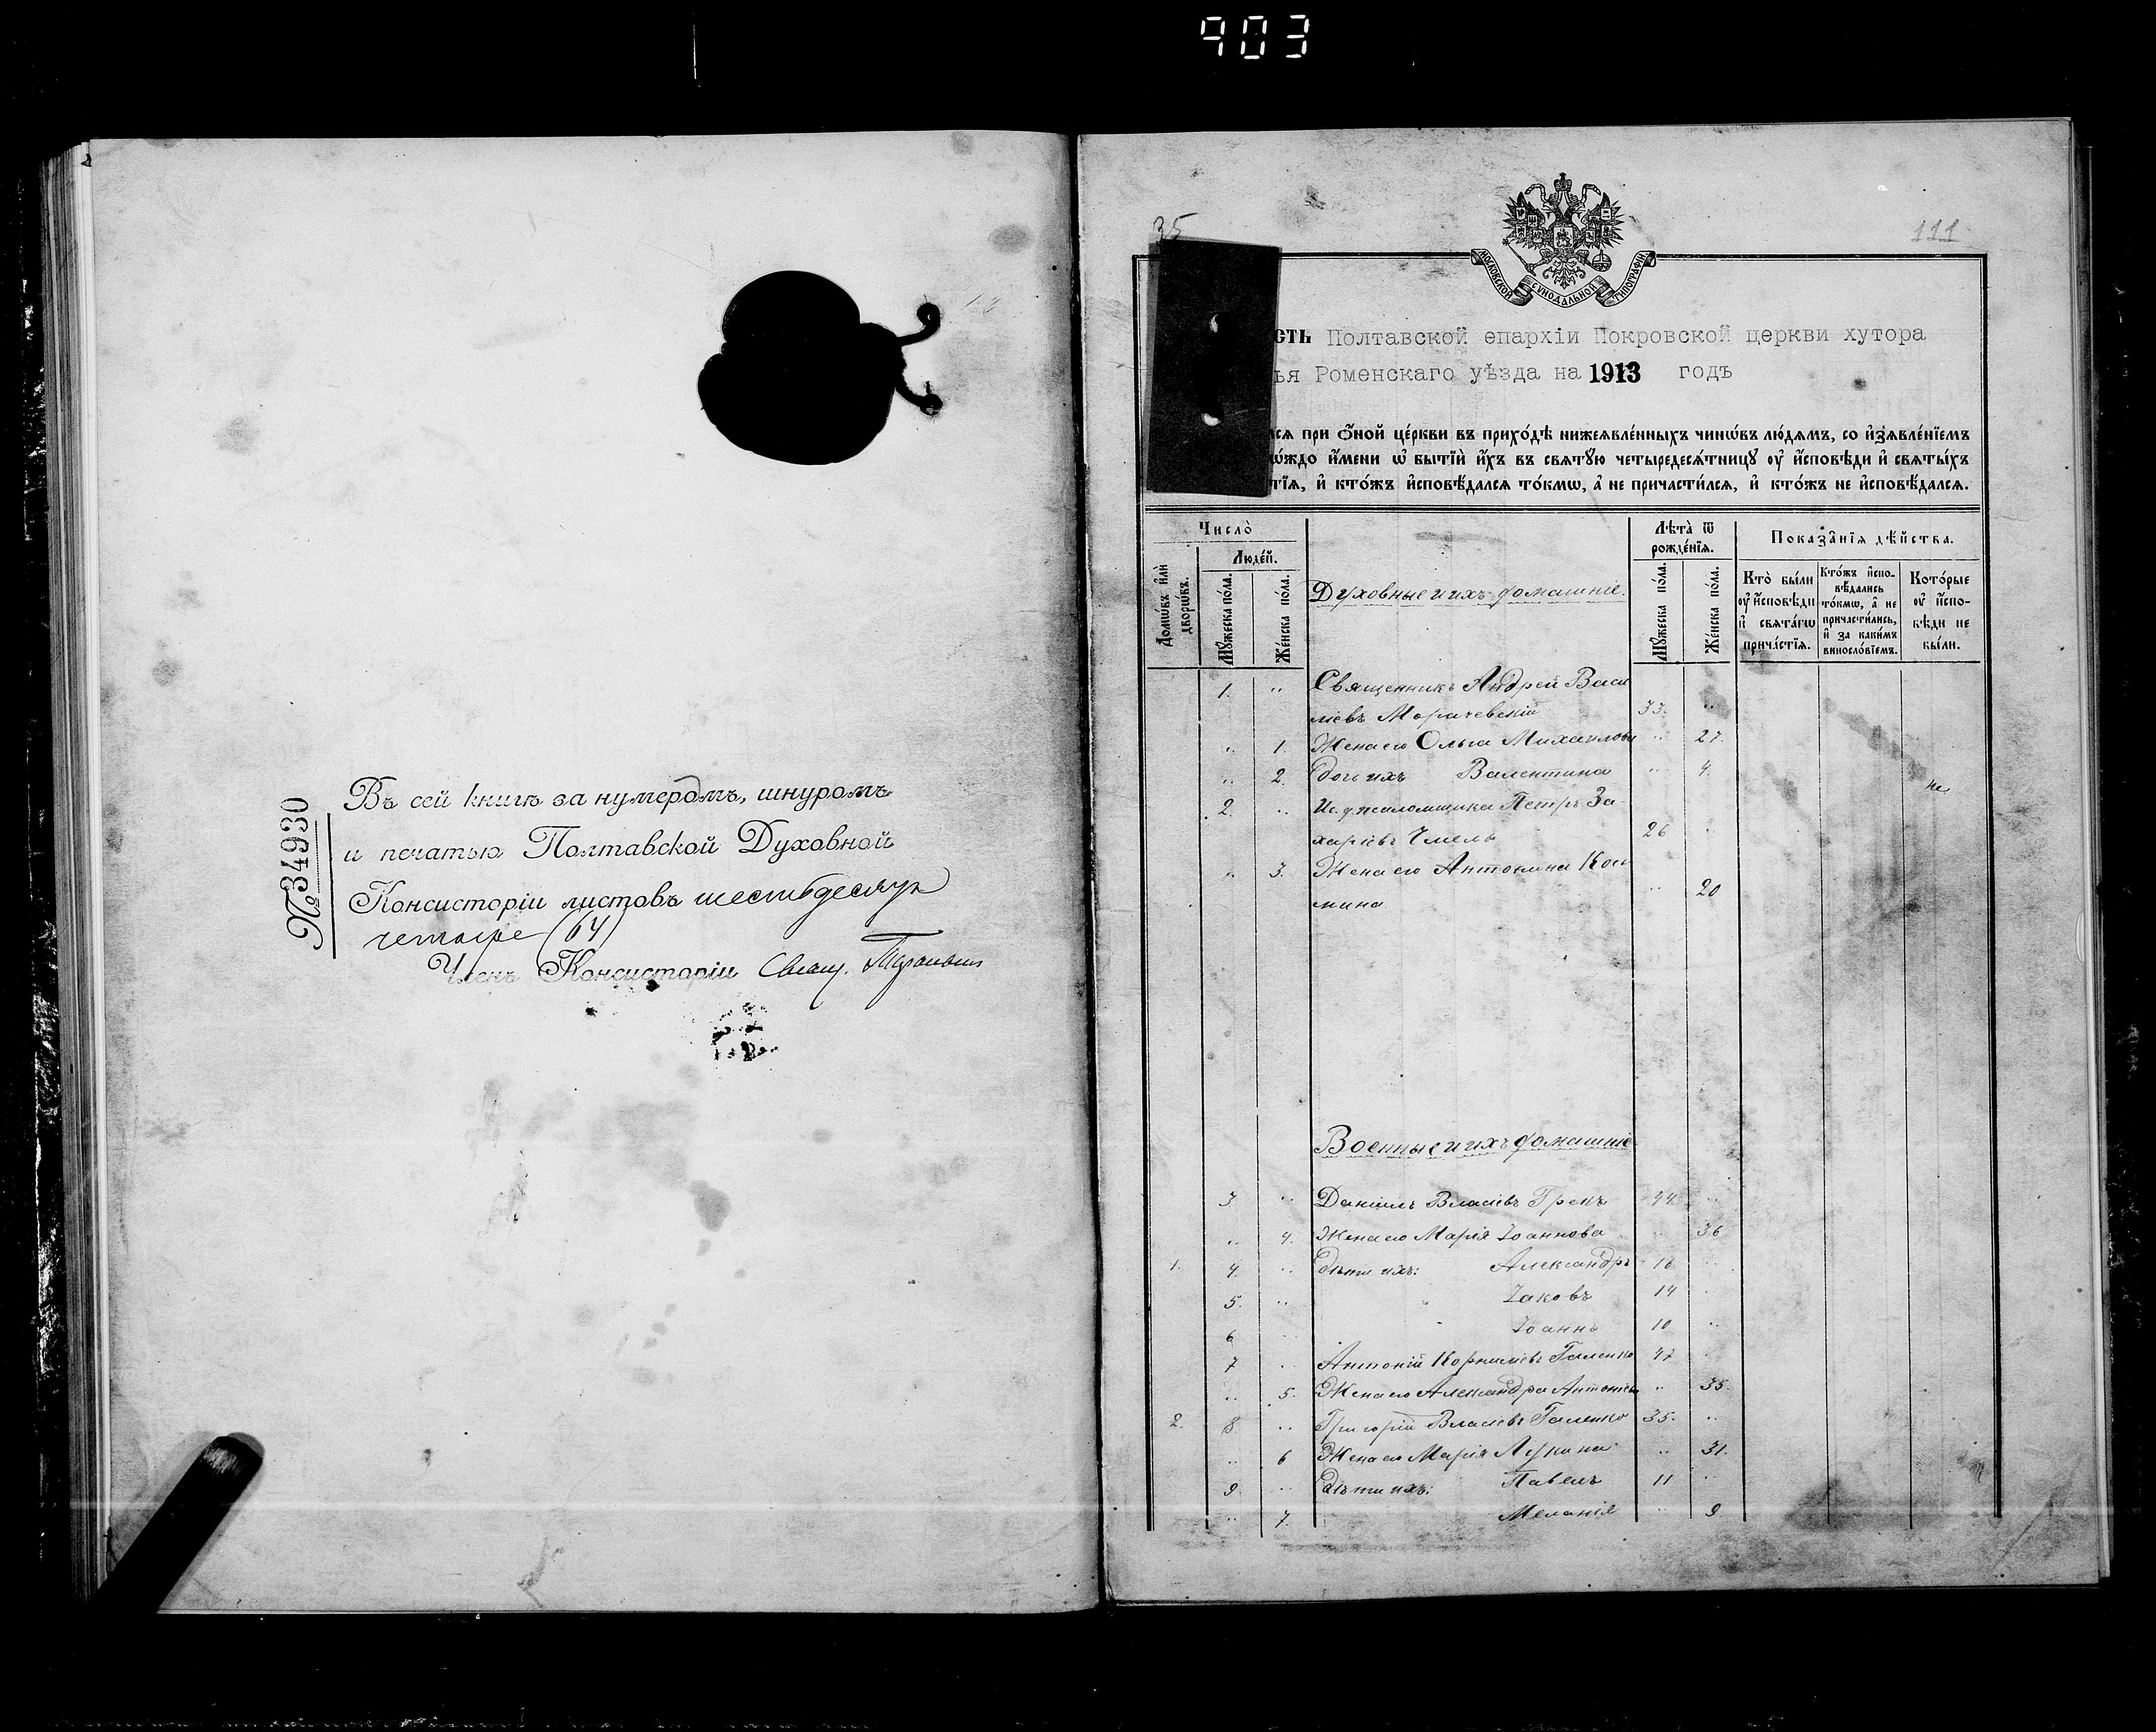 903
№ 34930
Въ сей книгѣ за нумеромъ, шнуромъ
и печатью Полтавской Духовной
Консисторіи листовъ шестьдесятъ
четыре (64)
Членъ Консисторіи Свящ.
35
111
МОСКОВСКОЙ СѴНОДАЛЬНОЙ ТИПОГРАФІИ
сть Полтавской епархіи Покровской церкви хутора
ья Роменскаго уѣзда на 1913 годъ
сѧ при ѻ҆́ной це́ркви въ прихо́дѣ нижеѧвле́нныхъ чинѡ́въ лю́дѧмъ, со и҆з̾ѧвле́нїемъ
ѡ́ждо и҆́мени ѡ҆ бытїѝ и҆́хъ въ свѧту́ю четыредесѧ́тницу ᲂу҆ и҆́сповѣди и҆ свѧты́хъ
тїѧ, и҆ кто́жъ и҆сповѣ́далсѧ то́кмѡ, а҆ не причасти́лсѧ, и҆ кто́жъ не и҆сповѣ́далсѧ.
Число̀
Люде́й.
Домѡ́въ и҆лѝ дворѡ́въ.
Му́жеска по́ла.
Же́нска по́ла.
Духовные и ихъ домашніе.
Лѣта̀ ѿ рожде́нїѧ.
Му́жеска по́ла.
Же́нска по́ла.
Показа̑нїѧ дѣ́йства.
Кто̀ бы́ли ᲂу҆ и҆́сповѣди и҆ свѧта́гѡ прича́стїѧ.
Кто́жъ и҆спо-вѣ́дались то́кмѡ, а҆ не причасти́лись, и҆ за каки́мъ виносло́вїемъ.
Кото́рые ᲂу҆ и҆́спо-вѣди не бы́ли.
1. " Священникъ Андрей Васи
ліевъ Морачевскій 33. "
" 1. Жена его Ольга Михаилова " 27.
" 2. Дочь ихъ Валентина " 4.
не
2. " Ис. д. псаломщика Петръ За
харіевъ Чмель 26 "
" 3. Жена его Антонина Кос
мина " 20
Военные и ихъ домашніе
3 " Даніилъ Власіевъ Грекъ 44 "
" 4. Жена его Марія Іоаннова " 36
1. 4. " Дѣти ихъ: Александръ 16 "
5. " Іаковъ 14 "
6 " Іоаннъ 10 "
7 " Антоній Корниліевъ Галенко 47 "
" 5. Жена его Александра Антоніева " 35.
2. 8 " Григорій Власіевъ Галенко 35. "
" 6 Жена его Марія Лукина " 31.
9 " Дѣти ихъ: Павелъ 11 "
" 7. Меланія " 9